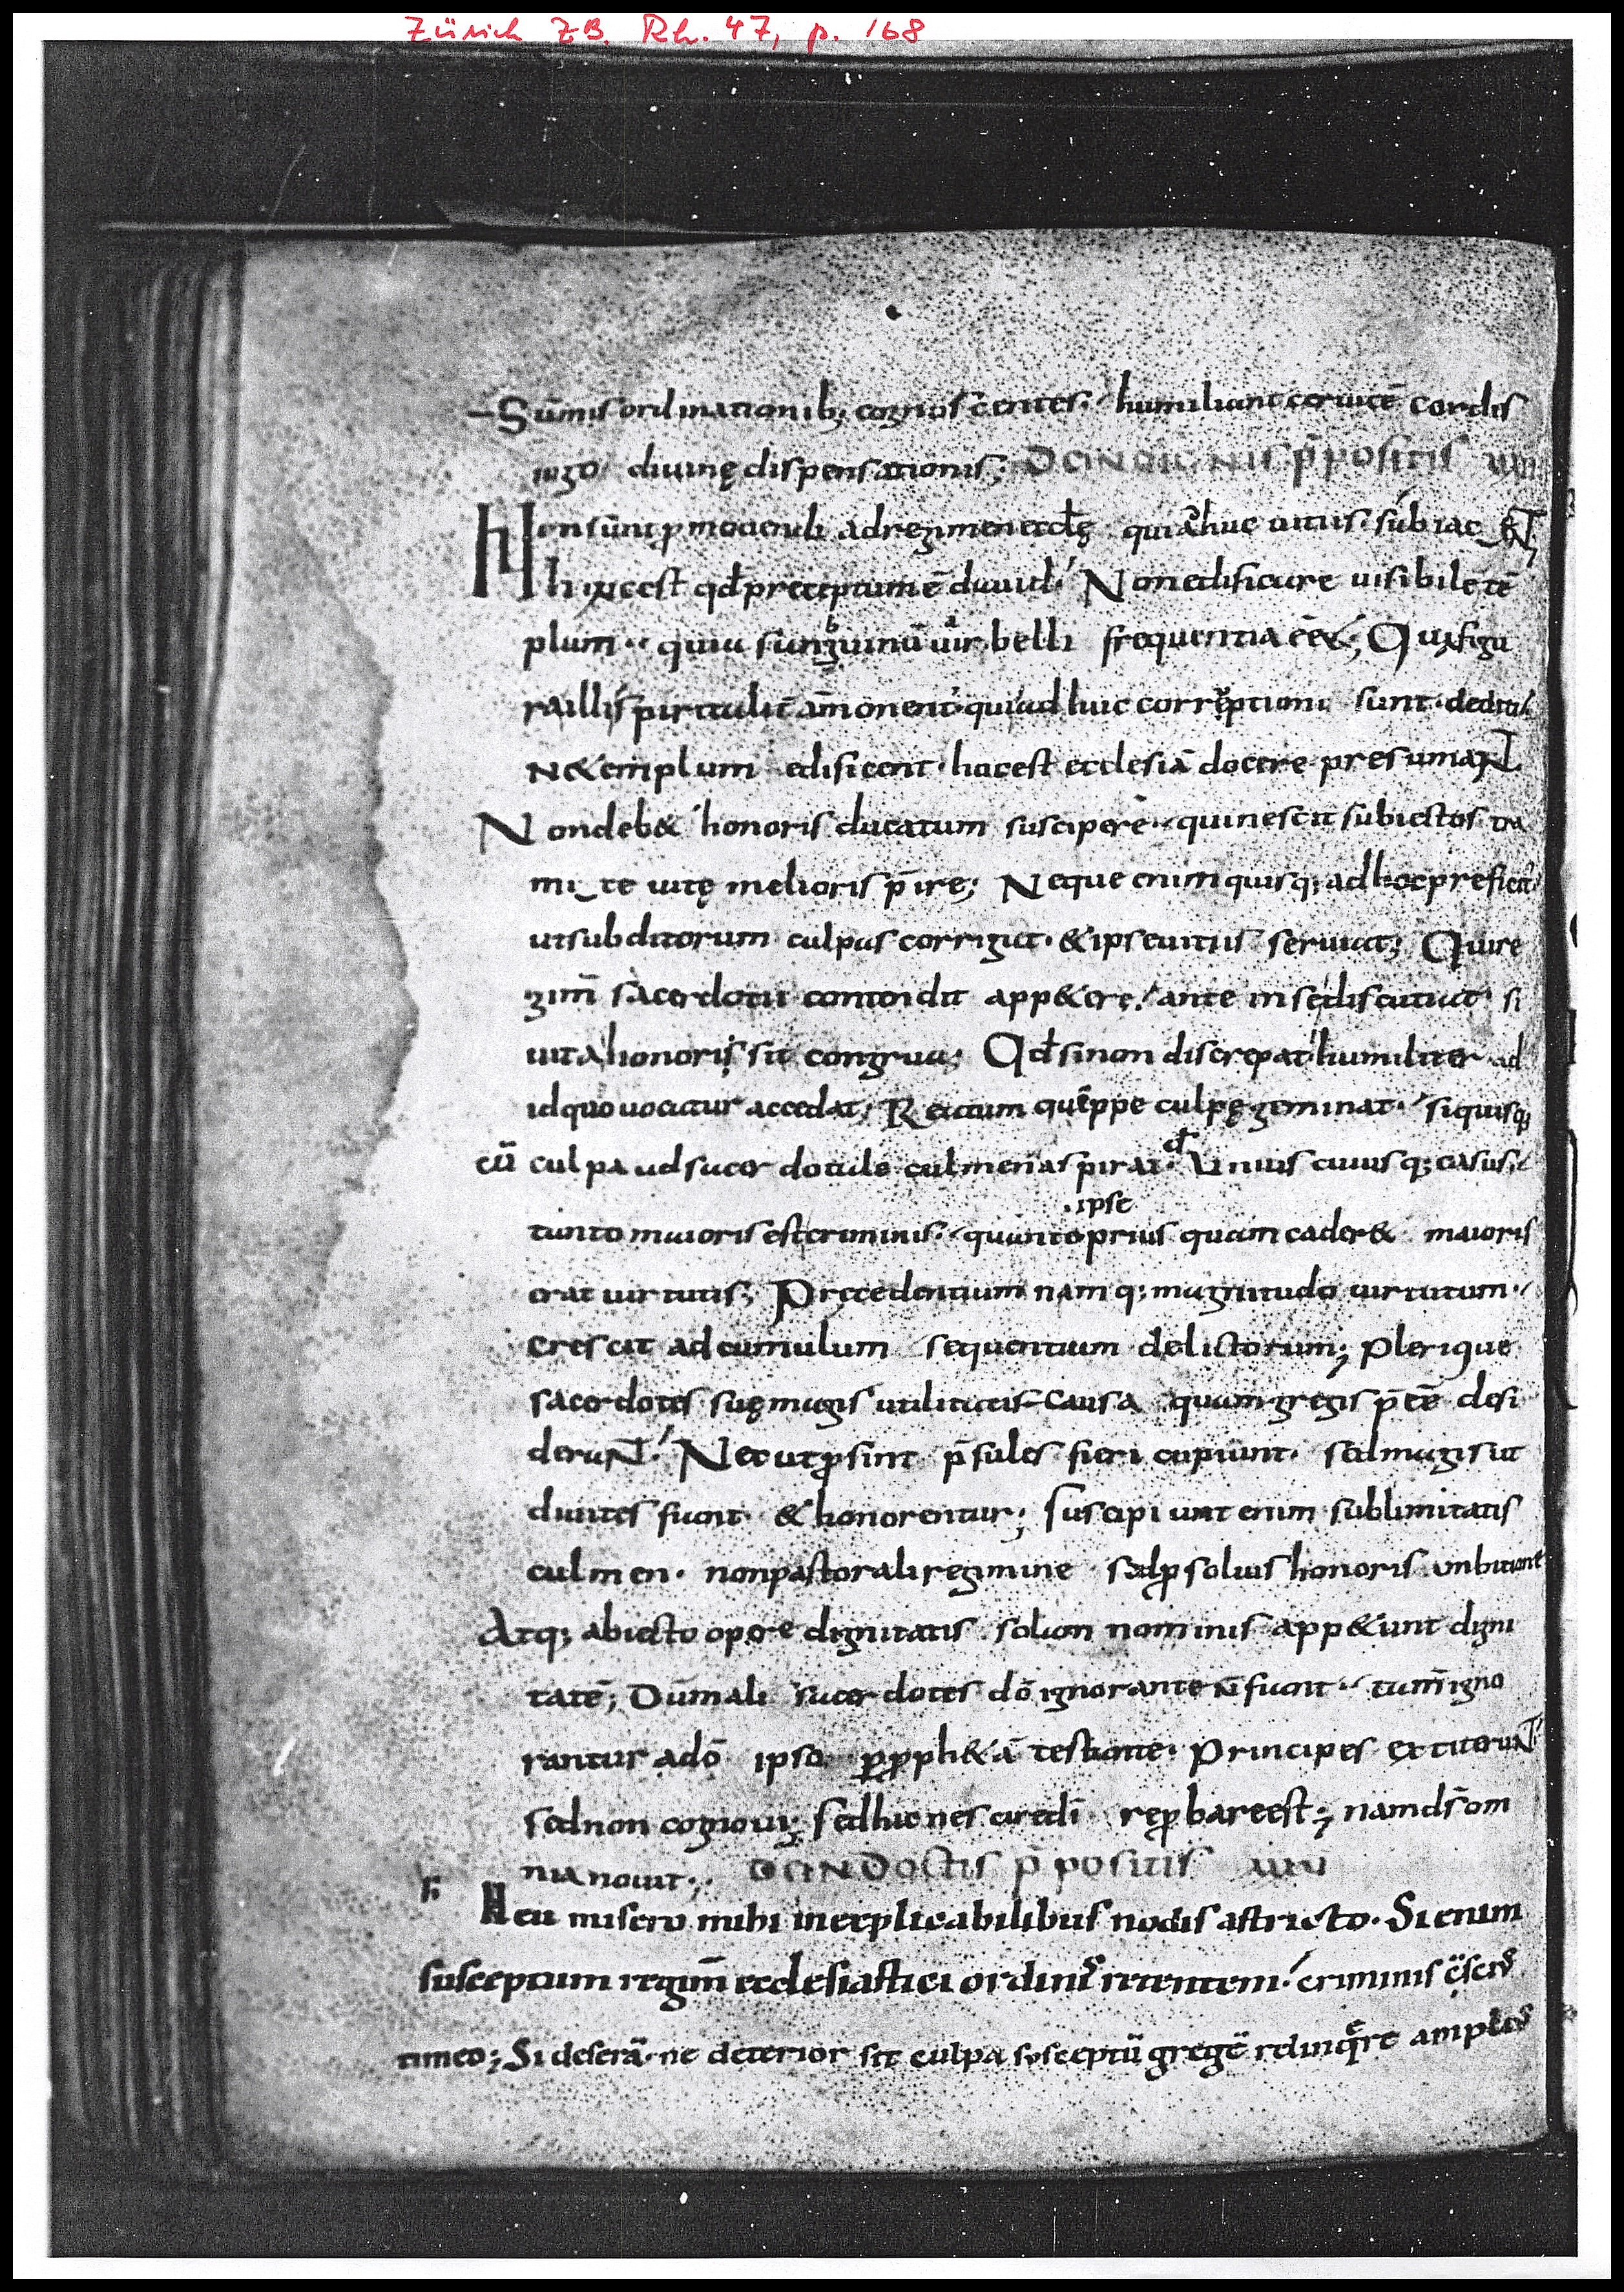 Zürich ZB. Rh. 47, p. 168
Sūmis ordinationib; cognoscentes. humiliant ceruicē cordis
iugo diuinę dispensationis; DE INDIGNIS p̄positis
Non sunt ꝓmouendi ad regimen eccłę qui adhuc uitiis subiacENT
hinc est qđ preceptum ē dauid. Non edificare uisibile tē
plum. quia sanguinū uir belli frequentia eēt; Qua figu
ra illi spiritalit̄ am̄onent᷑ qui adhuc corruptioni sunt dediti.
Ne templum edificent. hoc est ecclesiā docere presumaNT
Non deb& honoris ducatum suscipere. qui nescit subiectos tra
mite uitę melioris p̄ire; Neque enim quisq; ad hoc preficit᷑
ut subditorum culpas corrigat. & ipse uitiis seruiat; Qui re
gim̄ sacerdotii contendit app&ere. ante in se discutiat si
uita honoris sit congrua; Qđ si non discrepat humiliter ad
id quo uocatur accedat; Reatum quippe culpę geminat. si quisq;
cū culpa ad sacerdotale culmen aspirat. Unius cuiusq; casus.
.ipse
tanto maioris est criminis. quanto prius quam cader& maioris
erat uirtutis; Precedentium namq; magnitudo uirtutum.
crescit ad cumulum sequentium delictorum; Plerique
sacerdotes suę magis utilitatis causa quam gregis p̄eē desi
deraNT. Nec ut ꝓsint p̄sules fieri cupiunt. sed magis ut
diuites fiant & honorentur; Suscipiunt enim sublimitatis
culmen. non pastorali regimine sed ꝓ solius honoris ambitione
Atq; abiecto opere dignitatis solam nominis app&unt digni
tatē; Dum mali sacerdotes dō ignorante ñ fiant. tam̄ igno
rantur a dō ipso ꝑ ꝓph&ā testante. Principes extiteruNT
sed non cognoui; Sed hic nescire dī reꝓbare est; nam ds̄ om
nia nouit; DE INDOCTIS p̄positis
Heu misero mihi inexplicabilibus nodis astricto. Si enim
susceptum regim̄ ecclesiastici ordinis retentem. criminis
timeo; Si deserā. ne deterior sit culpa susceptū gregē relinq̄re